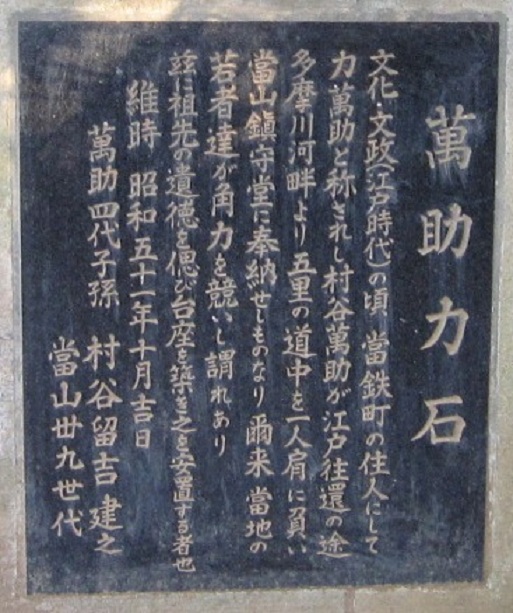 萬助力石
文化・文政(江戸時代)の頃 當鉄町の住人にして
力萬助と称されし村谷萬助が江戸往還の途
多摩川河畔より五里の道中を一人肩に負い
當山鎮守堂に奉納せしものなり 爾来 當地の
若者達が角力を競いし謂れあり
茲に祖先の遺徳を偲び台座を築き之を安置する者也
維時 昭和五十一年十月吉日
萬助四代子孫 村谷留吉 建之
當山丗九世代